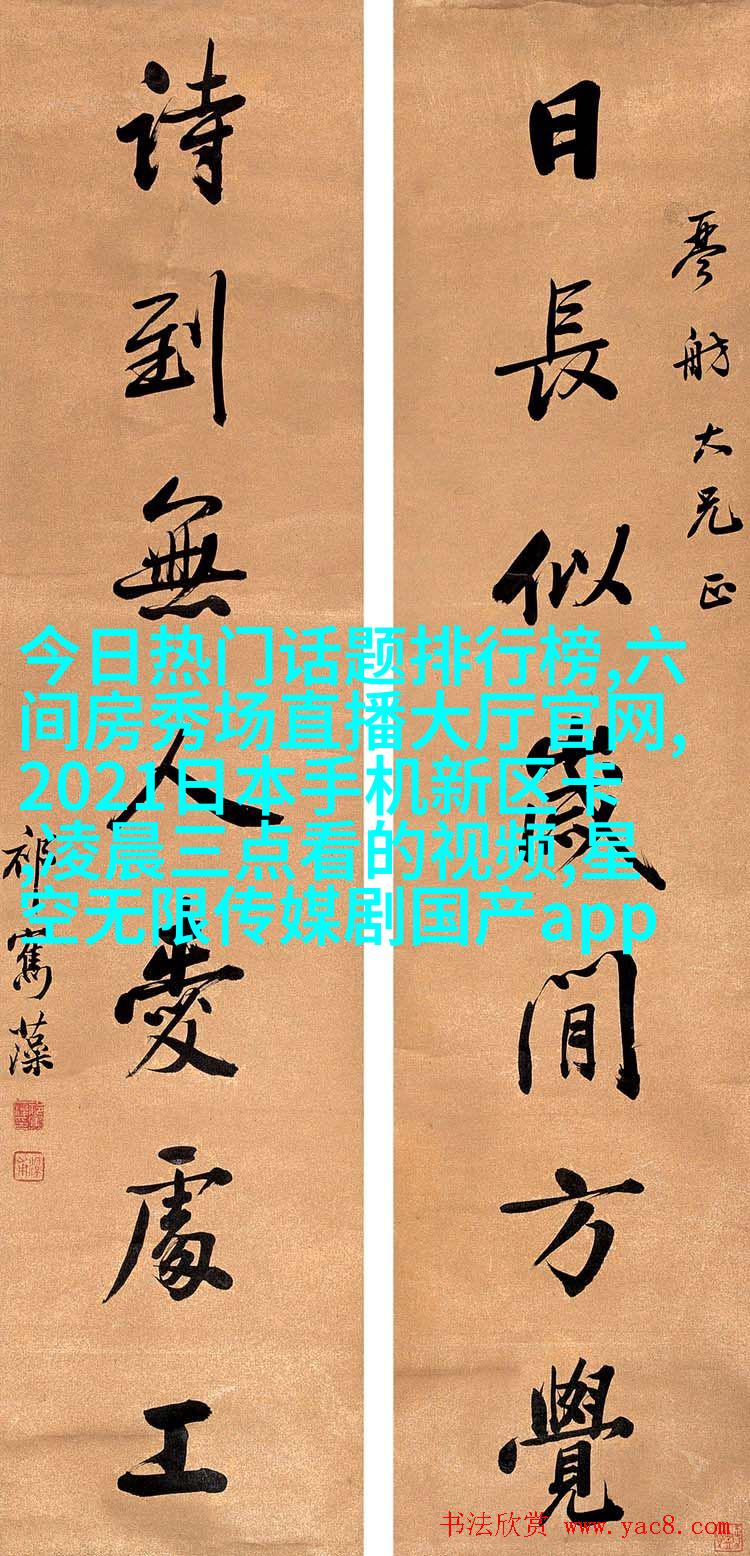 琴舫大兄正
日長似歲閒方覺
詩到無人愛處工
祁寯藻
今日热门话题排行榜,六
间房秀场直播大厅官网,
2021日本手机新区卡
,凌晨三点看的视频,星
空无限传媒剧国产app
书法欣赏 www.yac8.com